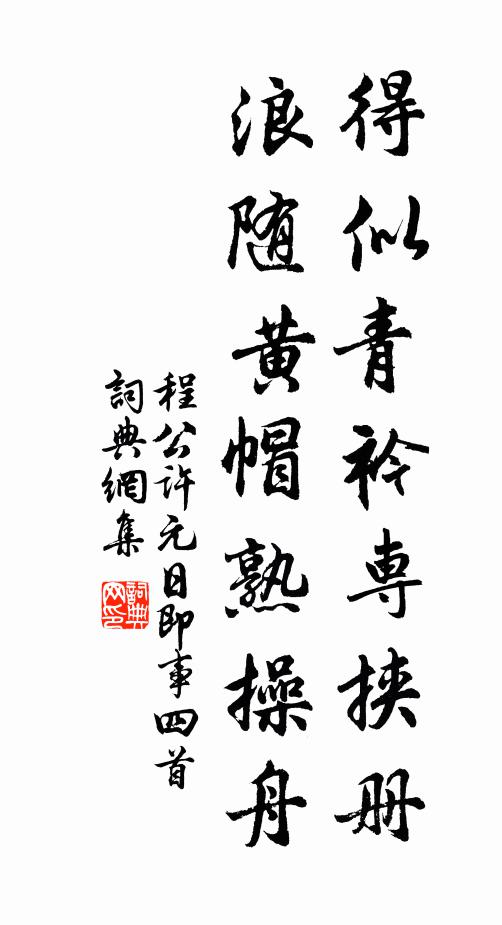 得似青衿専挟册
浪随黄帽熟操舟
程公许元日即事四首
詞典網集
詞典网印